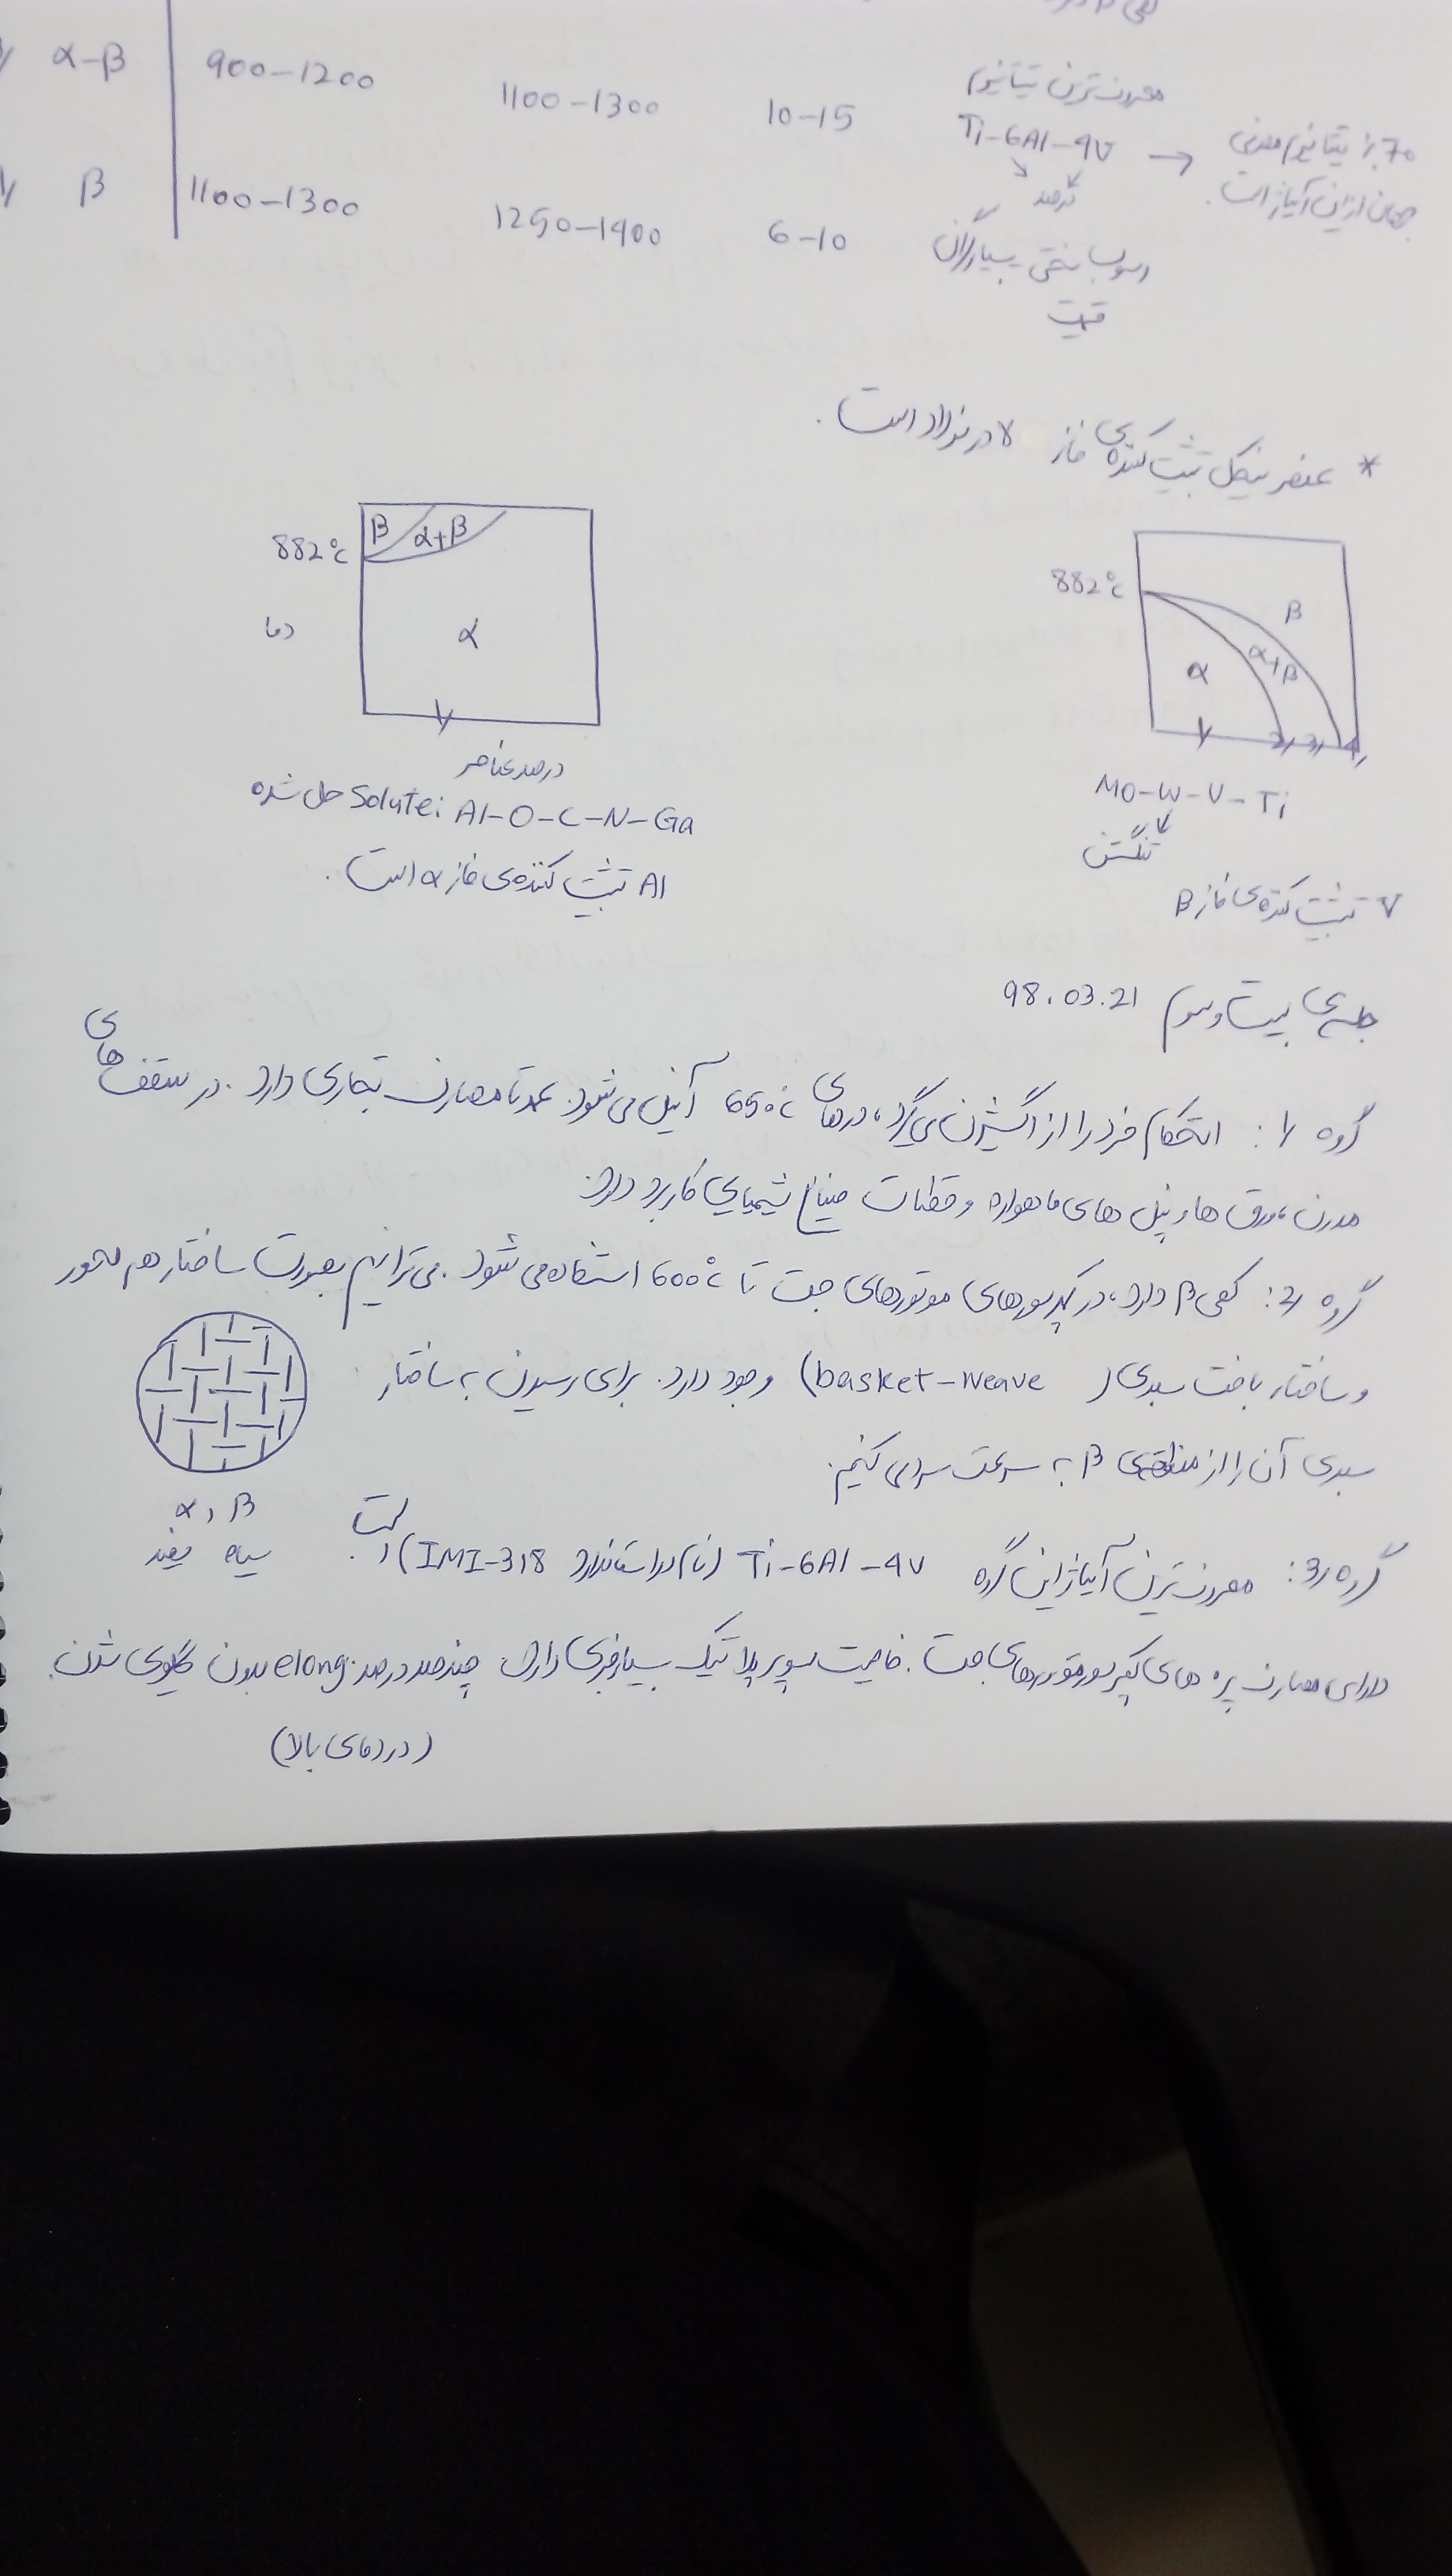 α-β 900-1200 1100-1300 10-15 معروفترین تیتانیوم
Ti-6Al-4V → 70٪ تیتانیوم مصرفی
درصد جهان از این آلیاژ است.
β 1100-1300 1250-1400 6-10 رسوب سختی بسیار گران
قیمت
* عنصر نیکل تثبیت کننده‌ی فاز γ در فولاد است.
882°c β α+β
دما α
1/
درصد عناصر
حل شده Solute: Al-O-C-N-Ga
Al تثبیت کننده‌ی فاز α است.
882°c β
α α+β
1/ 2/ 3/ 4/
Mo-W-V-Ti
تنگستن
V تثبیت کننده‌ی فاز β
جلسه‌ی بیست و سوم 98.03.21
گروه 1/: استحکام خود را از اکسیژن می‌گیرد، در دمای 650°c آنیل می‌شود. عمدتا مصارف تجاری دارد. در سقف‌های
مدرن، ورق ها و پنل های ماهواره و قطعات صنایع شیمیایی کاربرد دارد.
گروه 2/: کمی β دارد، در کمپرسورهای موتورهای جت تا 600°c استفاده می شود. می‌توانیم بصورت ساختار هم محور
و ساختار بافت سبدی (basket-weave) وجود دارد. برای رسیدن به ساختار
سبدی آن را از منطقه‌ی β به سرعت سرد می کنیم.
α , β
سیاه سفید
گروه 3/: معروف‌ترین آلیاژ این گروه Ti-6Al-4V (نام در استاندارد IMI-318) است.
دارای مصارف پره های کمپرسور موتورهای جت. خاصیت سوپر پلاستیک بسیار خوبی دارد. چند صد درصد elong. بدون گلویی شدن.
(در دمای بالا)